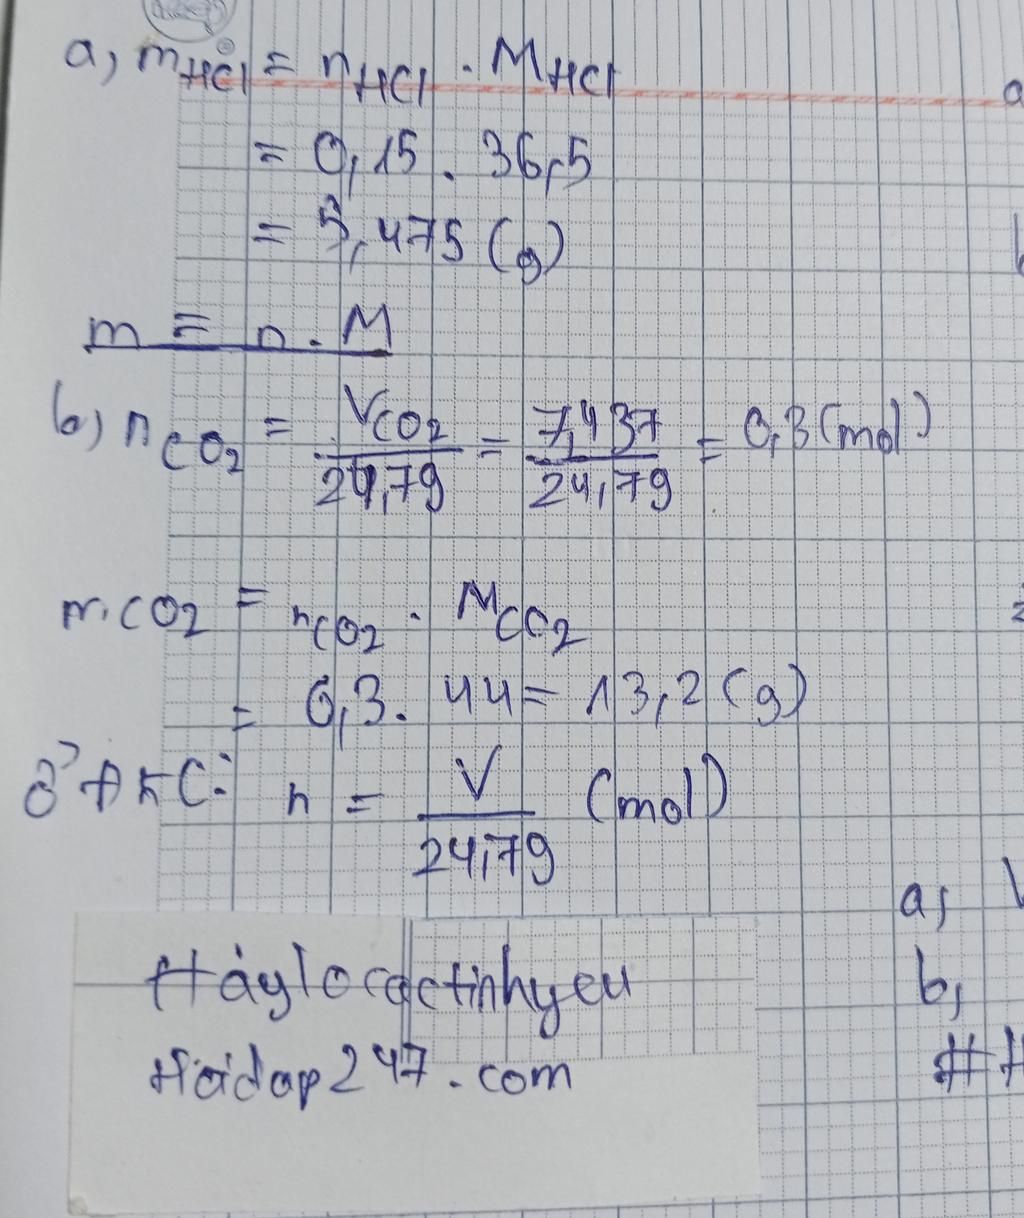 a, mHCl = nHCl . MHCl
= 0,15 . 36,5
= 5,475 (g)
m = n . M
b, nCO2 = VCO2/24,79 = 7,437/24,79 = 0,3 (mol)
mCO2 = nCO2 . MCO2
= 0,3 . 44 = 13,2 (g)
ở ĐKC: n = V/24,79 (mol)
a,
b,
Háylocactinhyeu
Hoidap247.com